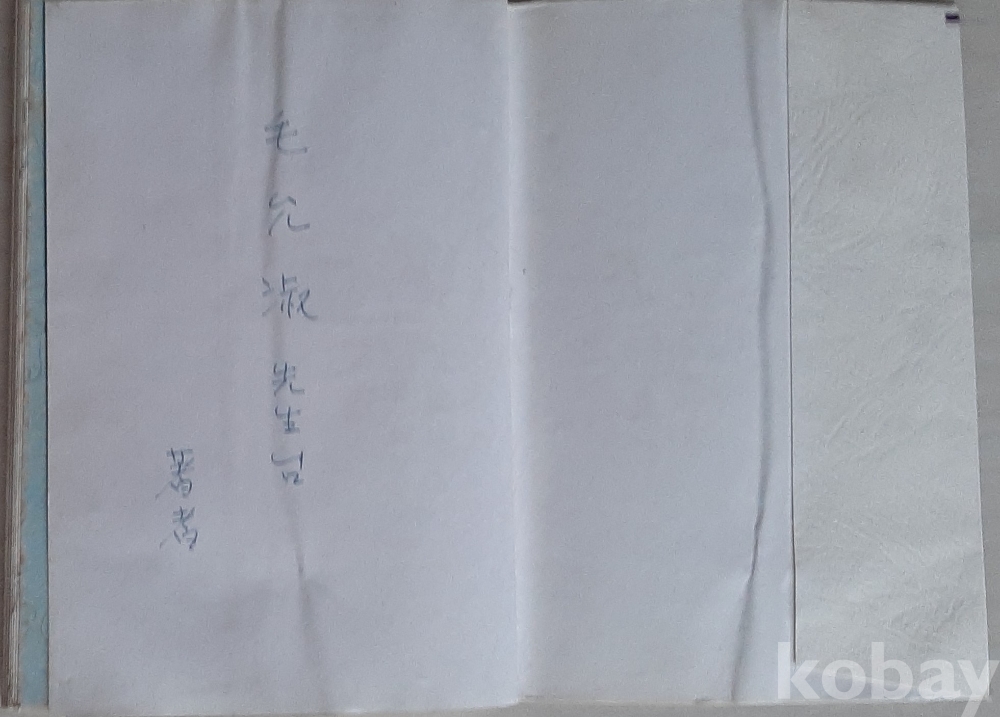 毛允淑 先生 깁
著者
kobay